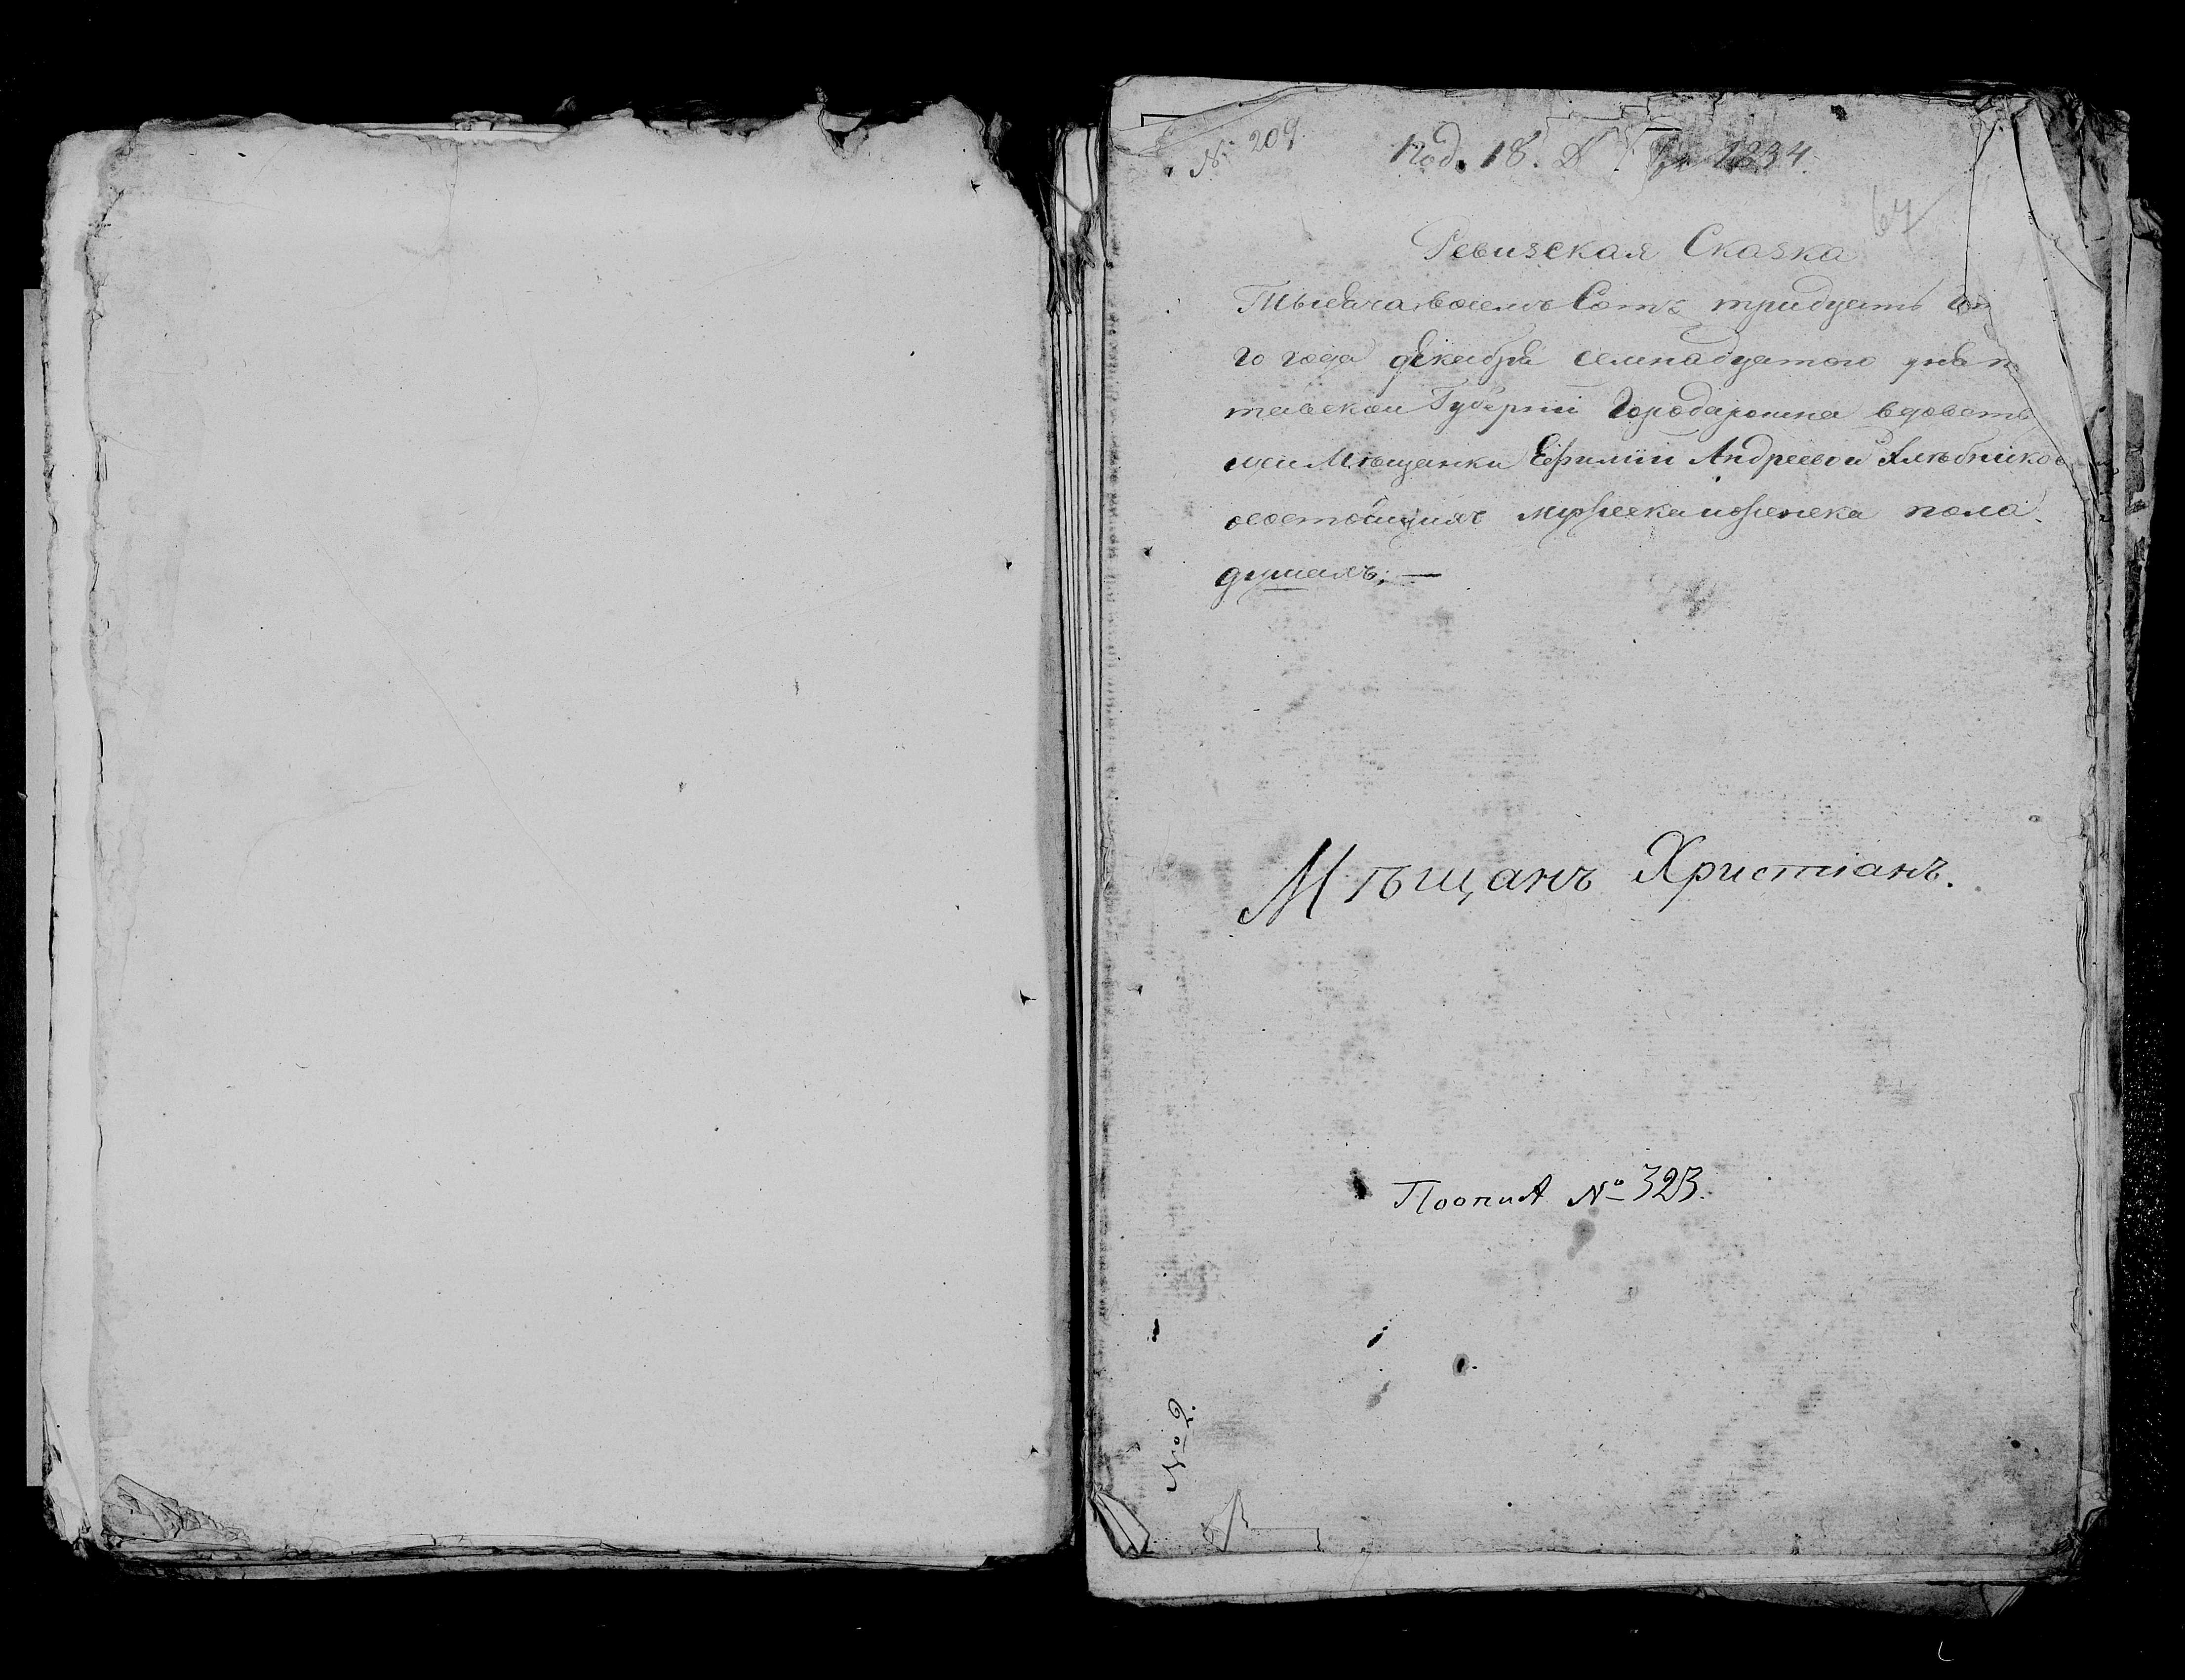 № 209.
Под. 18. Д 1834.
67
Ревизская Сказка
Тысяча восемь Сотъ тридцать
го года декабря семнадцатого дня
тавской Губернии Города вдовст
щей Мѣщанки Ефимiи Андреевой Хлѣбников
о состоящихъ мужеска и женска пола
душахъ; —
Мѣщанъ Христiанъ.
№ 323.
№ 2.